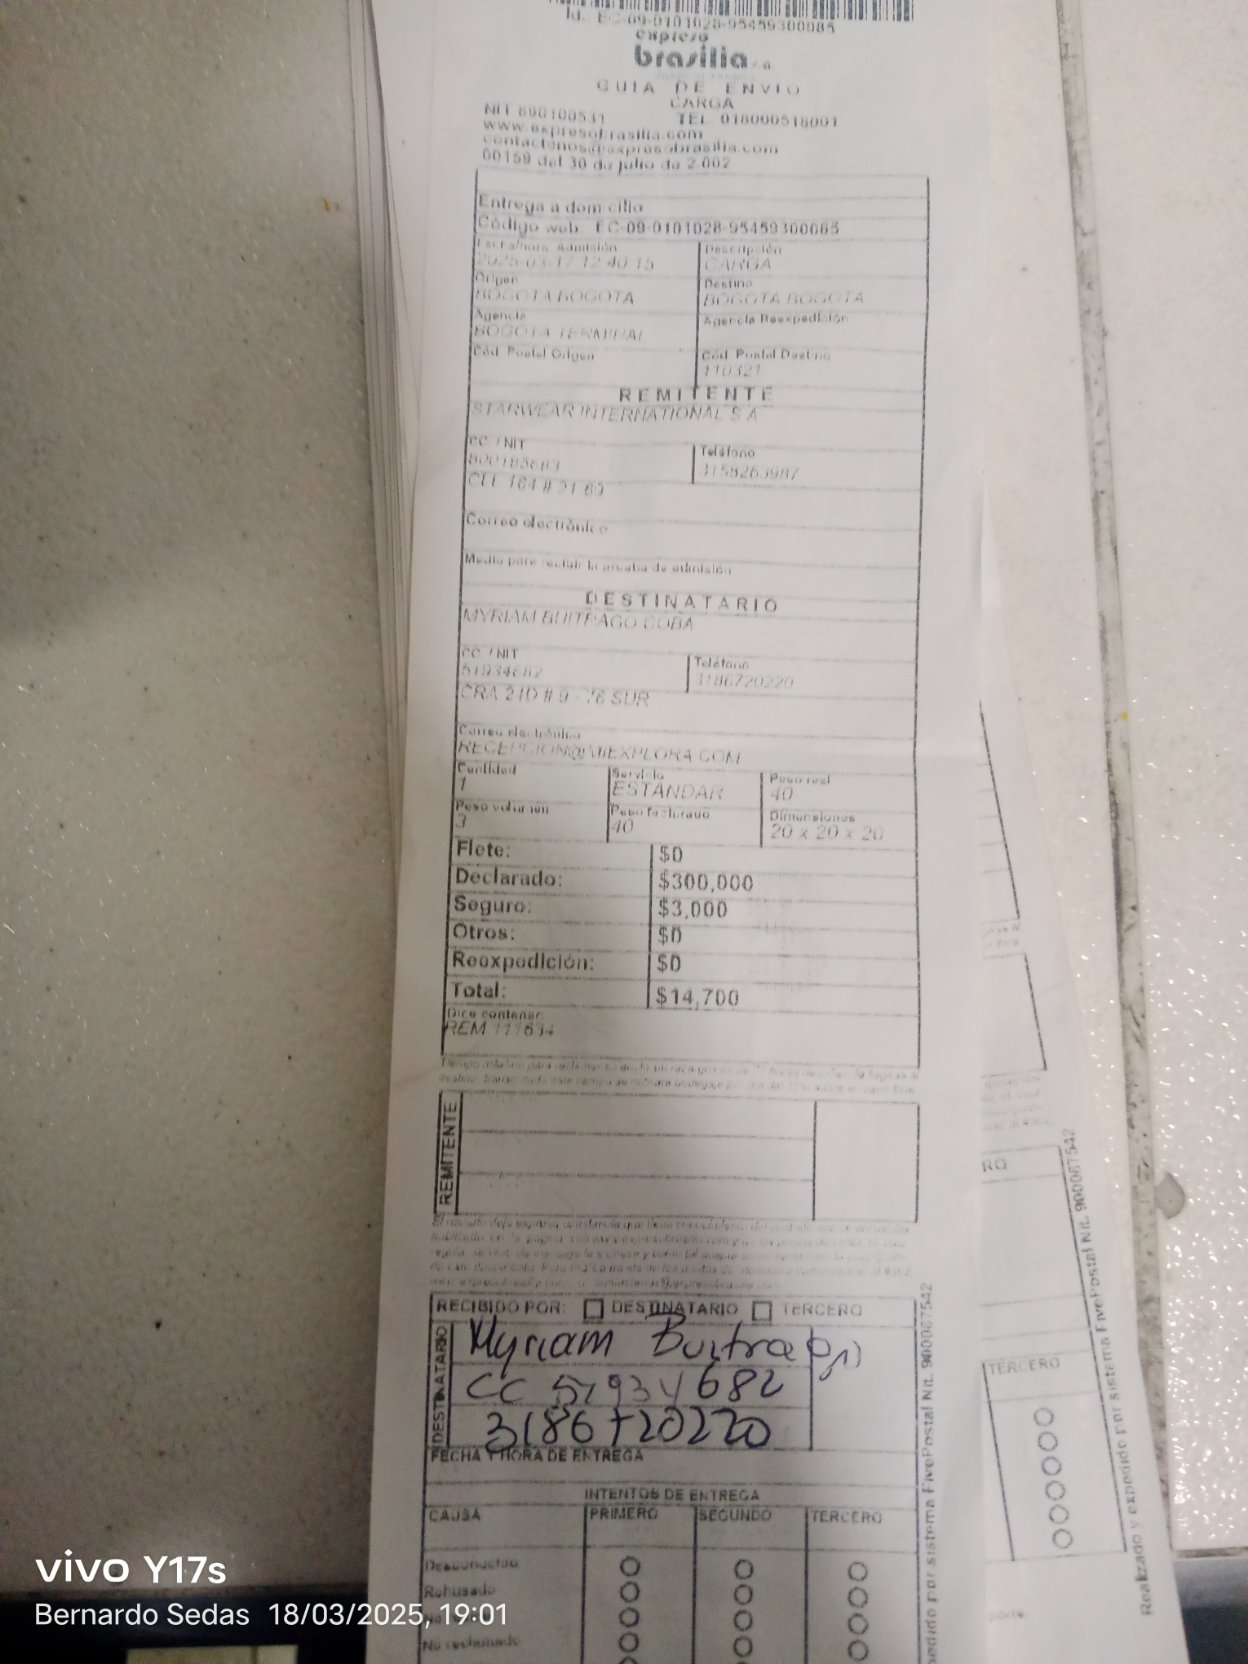 Id.: EC-09-0101028-95459300085
expreso
brasilia s.a
GUIA DE ENVIO
CARGA
NIT 890100531 TEL. 018000518001
www.expresobrasilia.com
contactenos@expresobrasilia.com
00159 del 30 de julio de 2.002
Entrega a domicilio
Código web EC-09-0101028-95459300085
Fecha/hora Admisión Descripción
2025-03-17 12:40:15 CARGA
Origen Destino
BOGOTA BOGOTA BOGOTA BOGOTA
Agencia Agencia Reexpedición
BOGOTA TERMINAL
Cód. Postal Origen Cód. Postal Destino
110321
REMITENTE
STARWEAR INTERNATIONAL S A
CC / NIT Teléfono
3158263987
CLL 164 # 21 69
Correo electrónico
Medio para recibir la prueba de admisión
DESTINATARIO
MYRIAM BUITRAGO COBA
CC / NIT Teléfono
51934682 3186720220
CRA 21D # 9 - 76 SUR
Correo electrónico
RECEPCION@MIEXPLORA.COM
Cantidad Servicio Peso real
1 ESTANDAR 40
Peso volumen Peso facturado Dimensiones
3 40 20 x 20 x 20
Flete: $0
Declarado: $300,000
Seguro: $3,000
Otros: $0
Reexpedición: $0
Total: $14,700
Dice contener:
REM 111634
REMITENTE
RECIBIDO POR: DESTINATARIO TERCERO
DESTINATARIO
Myriam Buitrago
CC 51934682
3186720220
FECHA Y HORA DE ENTREGA
INTENTOS DE ENTREGA
CAUSA PRIMERO SEGUNDO TERCERO
Desconocido
Rehusado
No reclamado
pedido por sistema FivePostal Nit. 900087542
RO
TERCERO
Realizado y expedido por sistema FivePostal Nit. 900087542
vivo Y17s
Bernardo Sedas 18/03/2025, 19:01